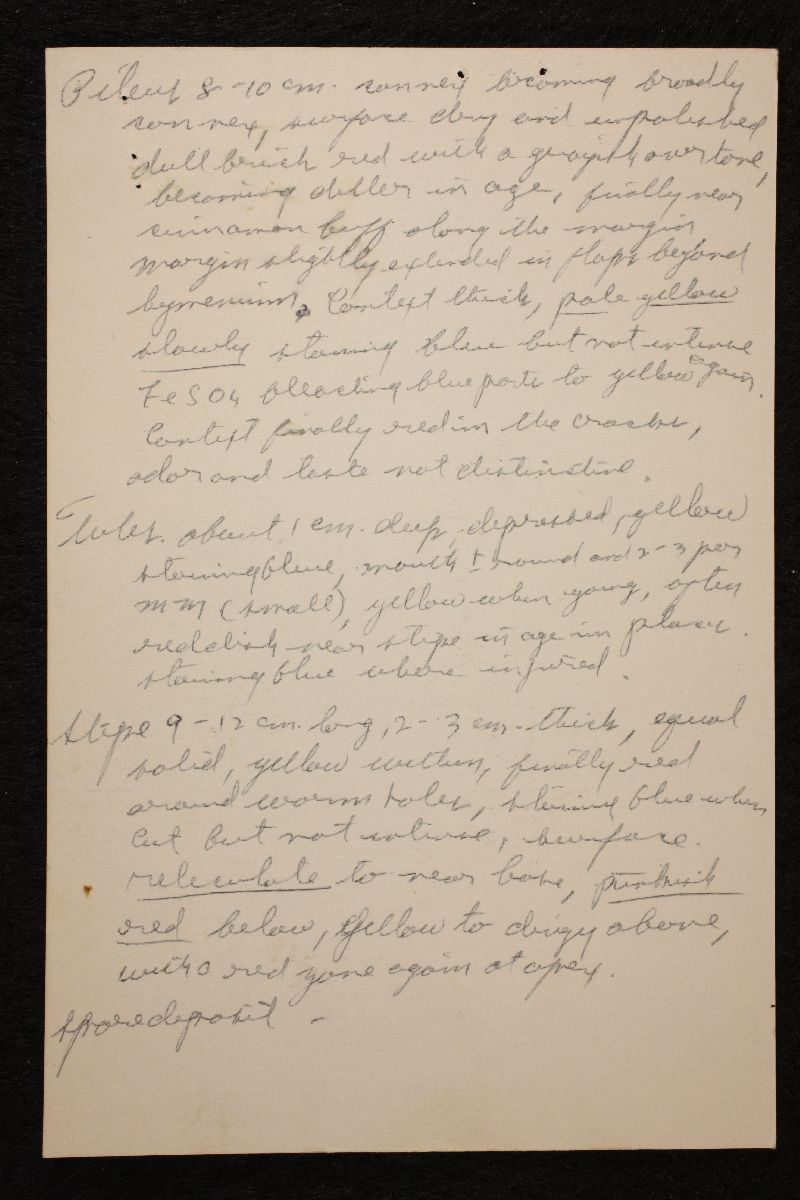 Pileus 8-10 cm. convex becoming broadly
convex, surface dry and unpolished
dull brick red with a grayish overtone,
becoming duller in age, finally near
cinnamon buff along the margin
margin slightly extended in flaps beyond
hymenium. Context thick, pale yellow
slowly staining blue but not intense
FeSO4 bleaching blue parts to yellow again.
Context finally red in the cracks,
odor and taste not distinctive.
Tubes about 1 cm. deep, depressed, yellow
staining blue, mouths ± round and 2-3 per
mm (small), yellow when young, often
reddish near stipe in age in places.
staining blue where injured.
Stipe 9-12 cm. long, 2-3 cm. thick, equal
solid, yellow within, finally red
around worm holes, staining blue when
cut but not intense, surface.
reticulate to near base, pinkish
red below, yellow to dingy above,
with a red zone again at apex.
Spore deposit -